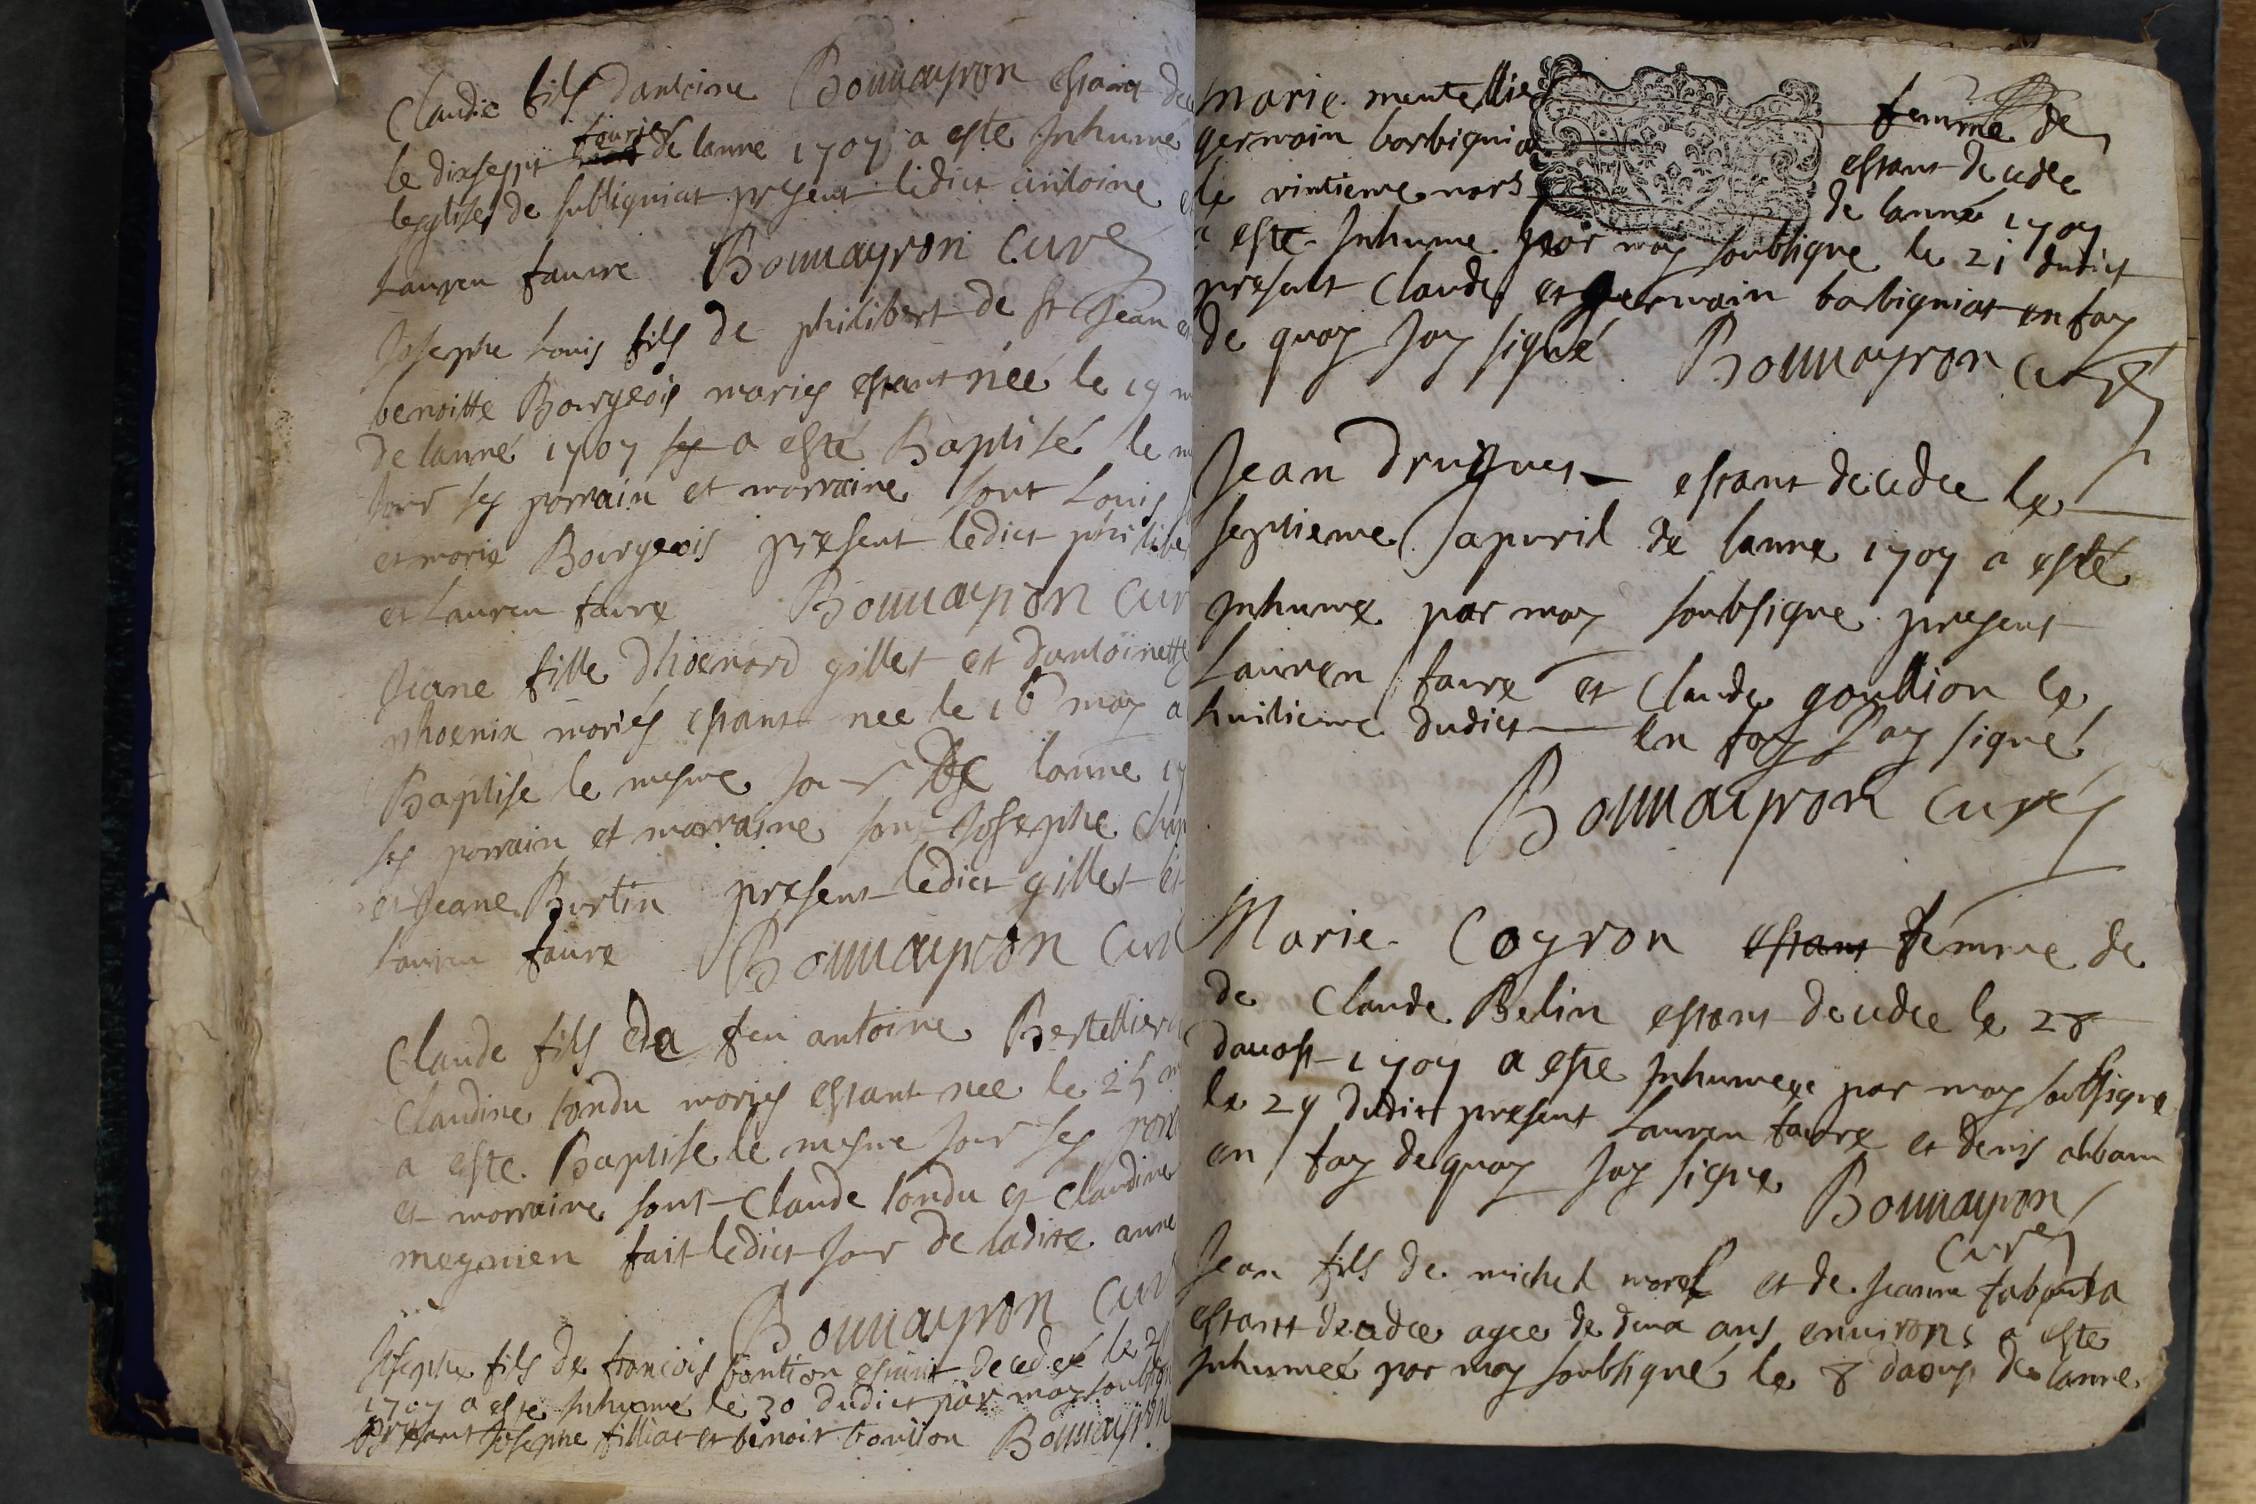 Claude fils dantoine Bonnaymon estant
le dixsept feurier de lanne 1707 a este Inhumé
leglise de subligniat present ledict antoine
Lauren faure Bonnaymon curé
Josephe Louis fils de philibert de st Jean
benoitte Bourgeois mariés estant née le 19
de lanné 1707 a esté Baptisé le
Jour ses parrain et marraine sont Louis
et marie Bourgeois present ledict philibe
et Lauren faure Bonnaymon cur
Jeane fille dhoenard gillet et dantoinette
phoenix mariés estant née le 16 may a
Baptise le mesme Jour de lanne 17
ses parrain et marraine sont Josephe
et Jeane Burtin present ledict gillet et
Lauren faure Bonnaymon Curé
Claude fils de feu antoine Bertellier
Claudine tondu mariés estant née le 25
a este Baptise le mesme Jour ses
et marraine sont Claude tondu et Claudine
megnien fait ledict Jour de ladite anne
Bonnaymon Curé
Josephe fils de francois estant decedé le
1707 a este Inhumé le 30 dudict par moy soubsigne
present Josephe filliat et benoit Bonnaymon
Marie mentellier femme de
germain barbigniat estant decedee
le vintieme mars de lanné 1707
a este Inhume par moy soubsigne le 21 dudict
present Claude et germain barbigniat en foy
de quoy Jay signé Bonnaymon curé
Jean estant decedee le
septieme apvril de lanne 1707 a esté
Inhume par moy soubsigne present
Lauren faure et Claude goullion le
huitieme dudict en foy Jay signé
Bonnaymon curé
Marie Coyron estant femme de
de Claude Belin estant decedee le 28
daoust 1707 a este Inhumee par moy soubsigne
le 29 dudict present Lauren faure et denis
en foy de quoy Jay signe Bonnaymon
curé
Jean fils de michel morel et de Jeanne
estant decedee agee de deux ans environs a este
Inhumeé par moy soubsigné le 8 daoust de lanne